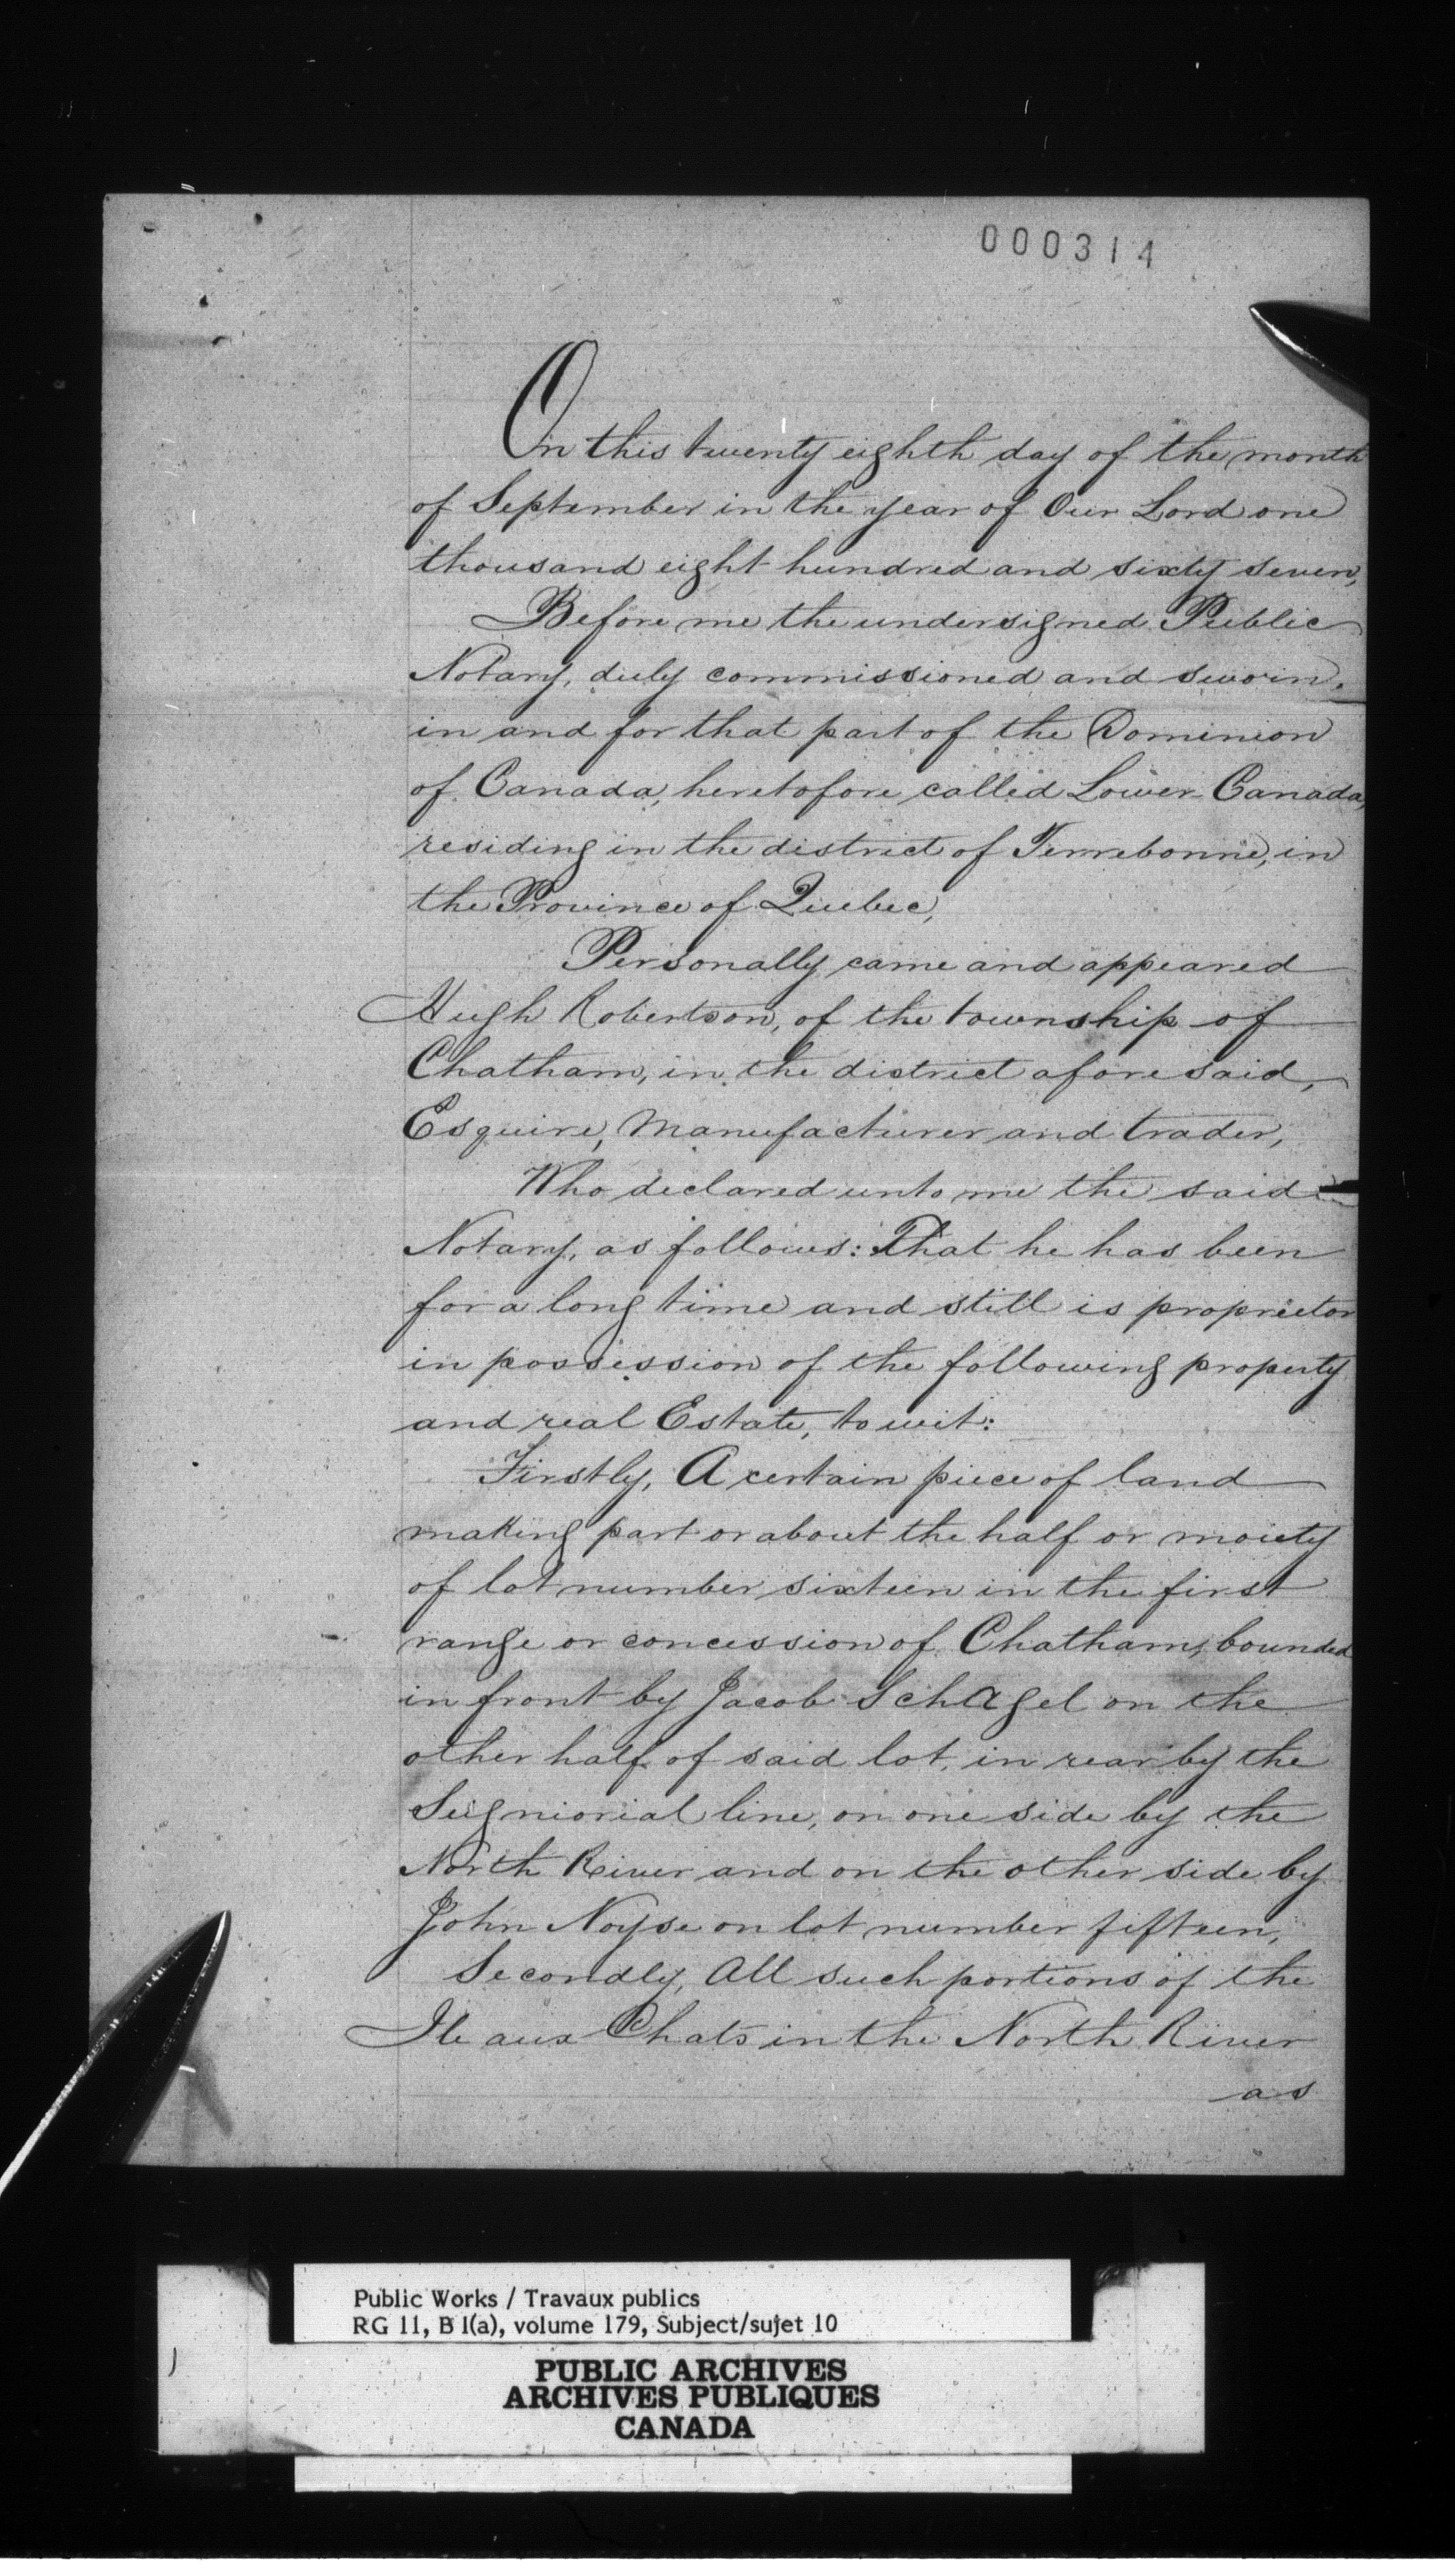 000314
On this twenty eighth day of the month
of September in the year of Our Lord one
thousand eight hundred and sixty seven,
Before me the undersigned Public
Notary, duly commissioned and sworn,
in and for that part of the Dominion
of Canada, heretofore called Lower Canada,
residing in the district of Terrebonne, in
the Province of Quebec,
Personally came and appeared
Hugh Robertson, of the township of
Chatham, in the district aforesaid,
Esquire, Manufacturer and trader,
Who declared unto me the said
Notary, as follows: That he has been
for a long time and still is proprietor
in possession of the following property
and real Estate, to wit:
Firstly, A certain piece of land
making part or about the half or moiety
of lot number sixteen in the first
range or concession of Chatham, bounded
in front by Jacob Schagel on the
other half of said lot, in rear by the
Seigniorial line, on one side by the
North River and on the other side by
John Noyse on lot number fifteen,
Secondly, All such portions of the
Ile aux Chats in the North River
as
Public Works / Travaux publics
RG 11, B 1(a), volume 179, Subject/sujet 10
PUBLIC ARCHIVES
ARCHIVES PUBLIQUES
CANADA